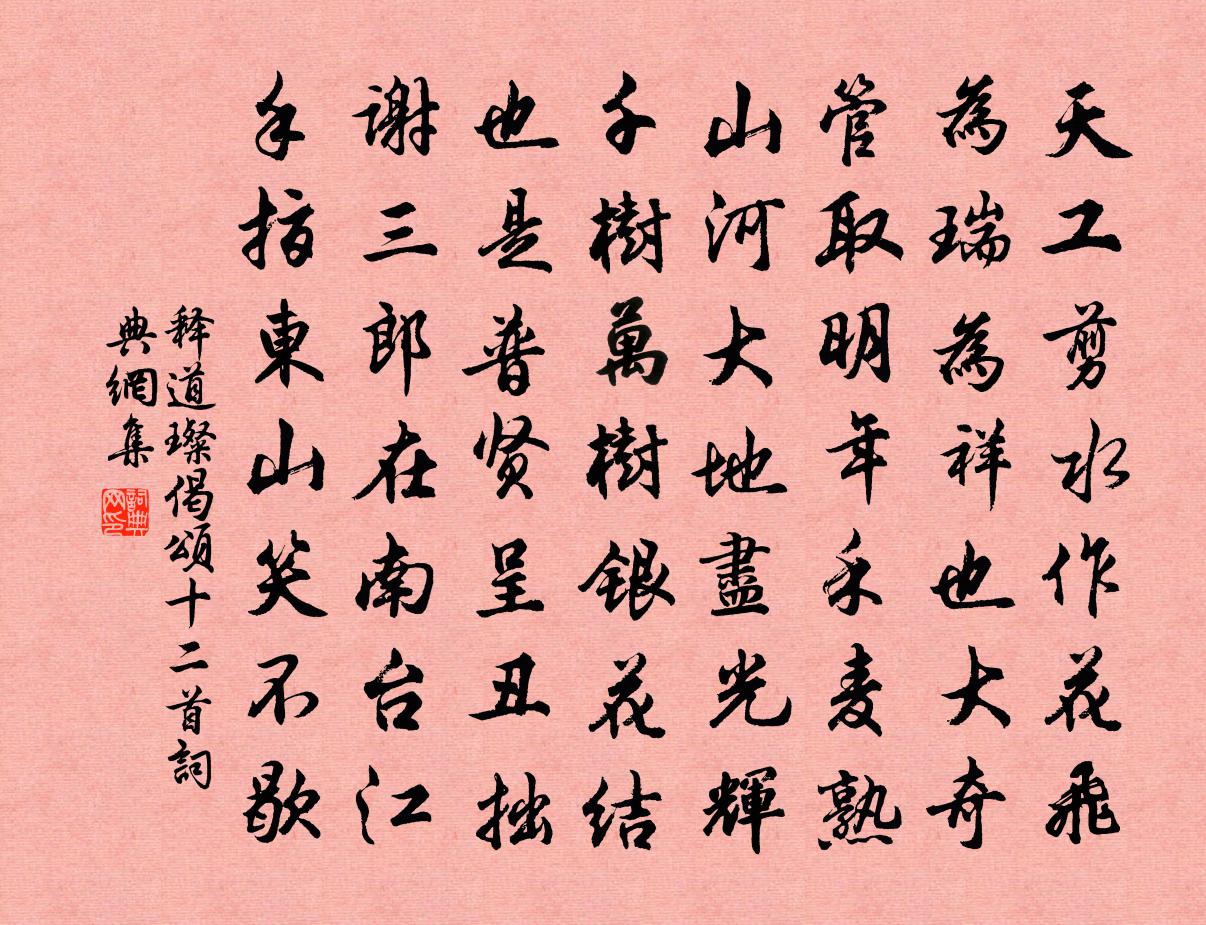 天工剪水作花飛
為瑞為祥也大奇
管取明年禾麦熟
山河大地盡光輝
千樹萬樹銀花結
也是普贤呈丑拙
謝三郎在南台江
手指東山笑不歇
释道璨偈頌十二首詞
典網集
詞典
网印